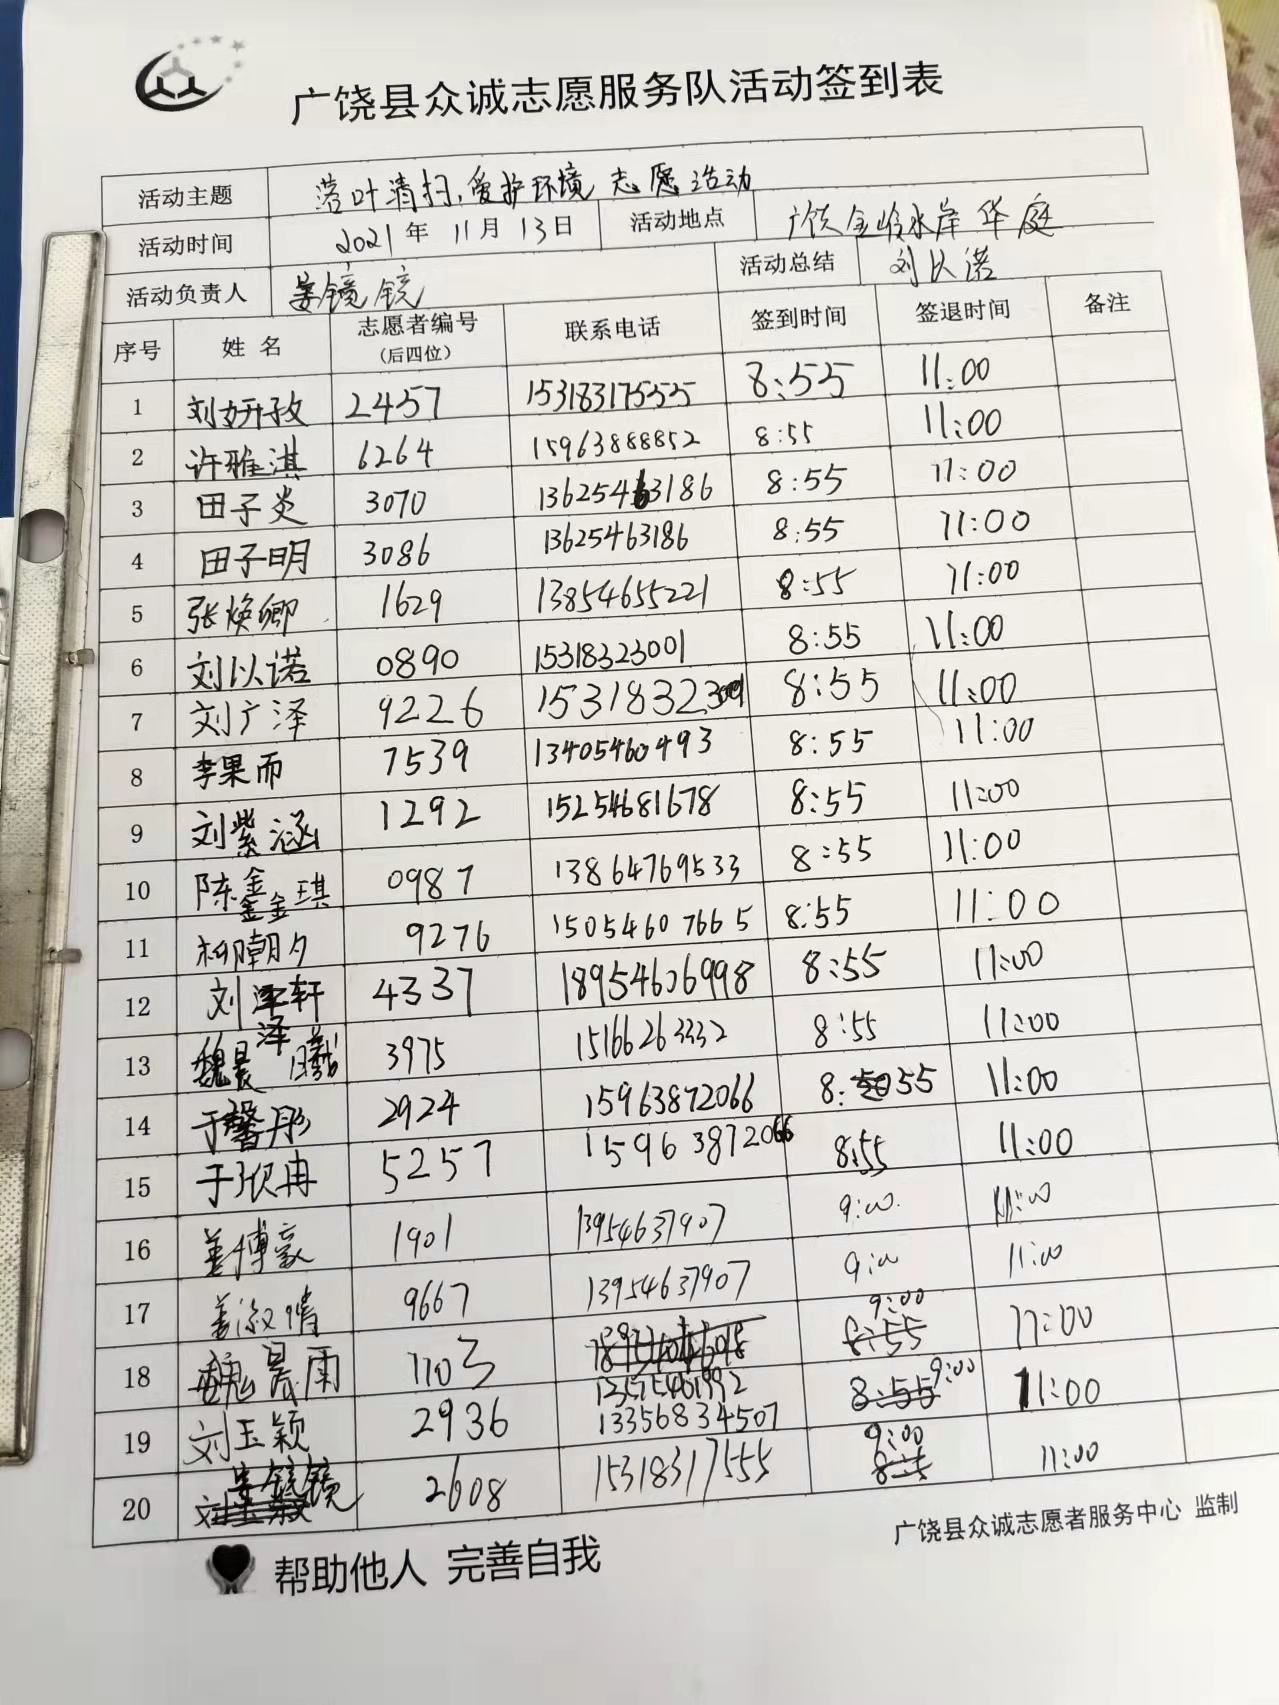 广饶县众诚志愿服务队活动签到表
活动主题 落叶清扫,爱护环境 志愿活动
活动时间 2021年 11月 13日 活动地点 广饶金岭水岸华庭
活动负责人 姜镜镜 活动总结 刘以诺
序号 姓名 志愿者编号(后四位) 联系电话 签到时间 签退时间 备注
1 刘妍孜 2457 15318317555 8:55 11:00
2 许雅淇 6264 15963888852 8:55 11:00
3 田子炎 3070 13625463186 8:55 11:00
4 田子明 3086 13625463186 8:55 11:00
5 张焕卿 1629 13854655221 8:55 11:00
6 刘以诺 0890 15318323001 8:55 11:00
7 刘广泽 9226 15318323001 8:55 11:00
8 李果而 7539 13405460493 8:55 11:00
9 刘紫涵 1292 15254681678 8:55 11:00
10 陈鑫琪 0987 13864769533 8:55 11:00
11 柳朝夕 9276 15054607665 8:55 11:00
12 刘泽轩 4337 18954606998 8:55 11:00
13 魏晨曦 3975 15166263332 8:55 11:00
14 于馨彤 2924 15963872066 8:55 11:00
15 于欣冉 5257 15963872066 8:55 11:00
16 姜博豪 1901 13954637907 9:00 11:00
17 姜淑情 9667 13954637907 9:00 11:00
18 魏晨雨 1103 9:00 11:00
19 刘玉颖 2936 13356834507 9:00 11:00
20 姜镜镜 2608 15318317555 9:00 11:00
帮助他人 完善自我
广饶县众诚志愿者服务中心 监制